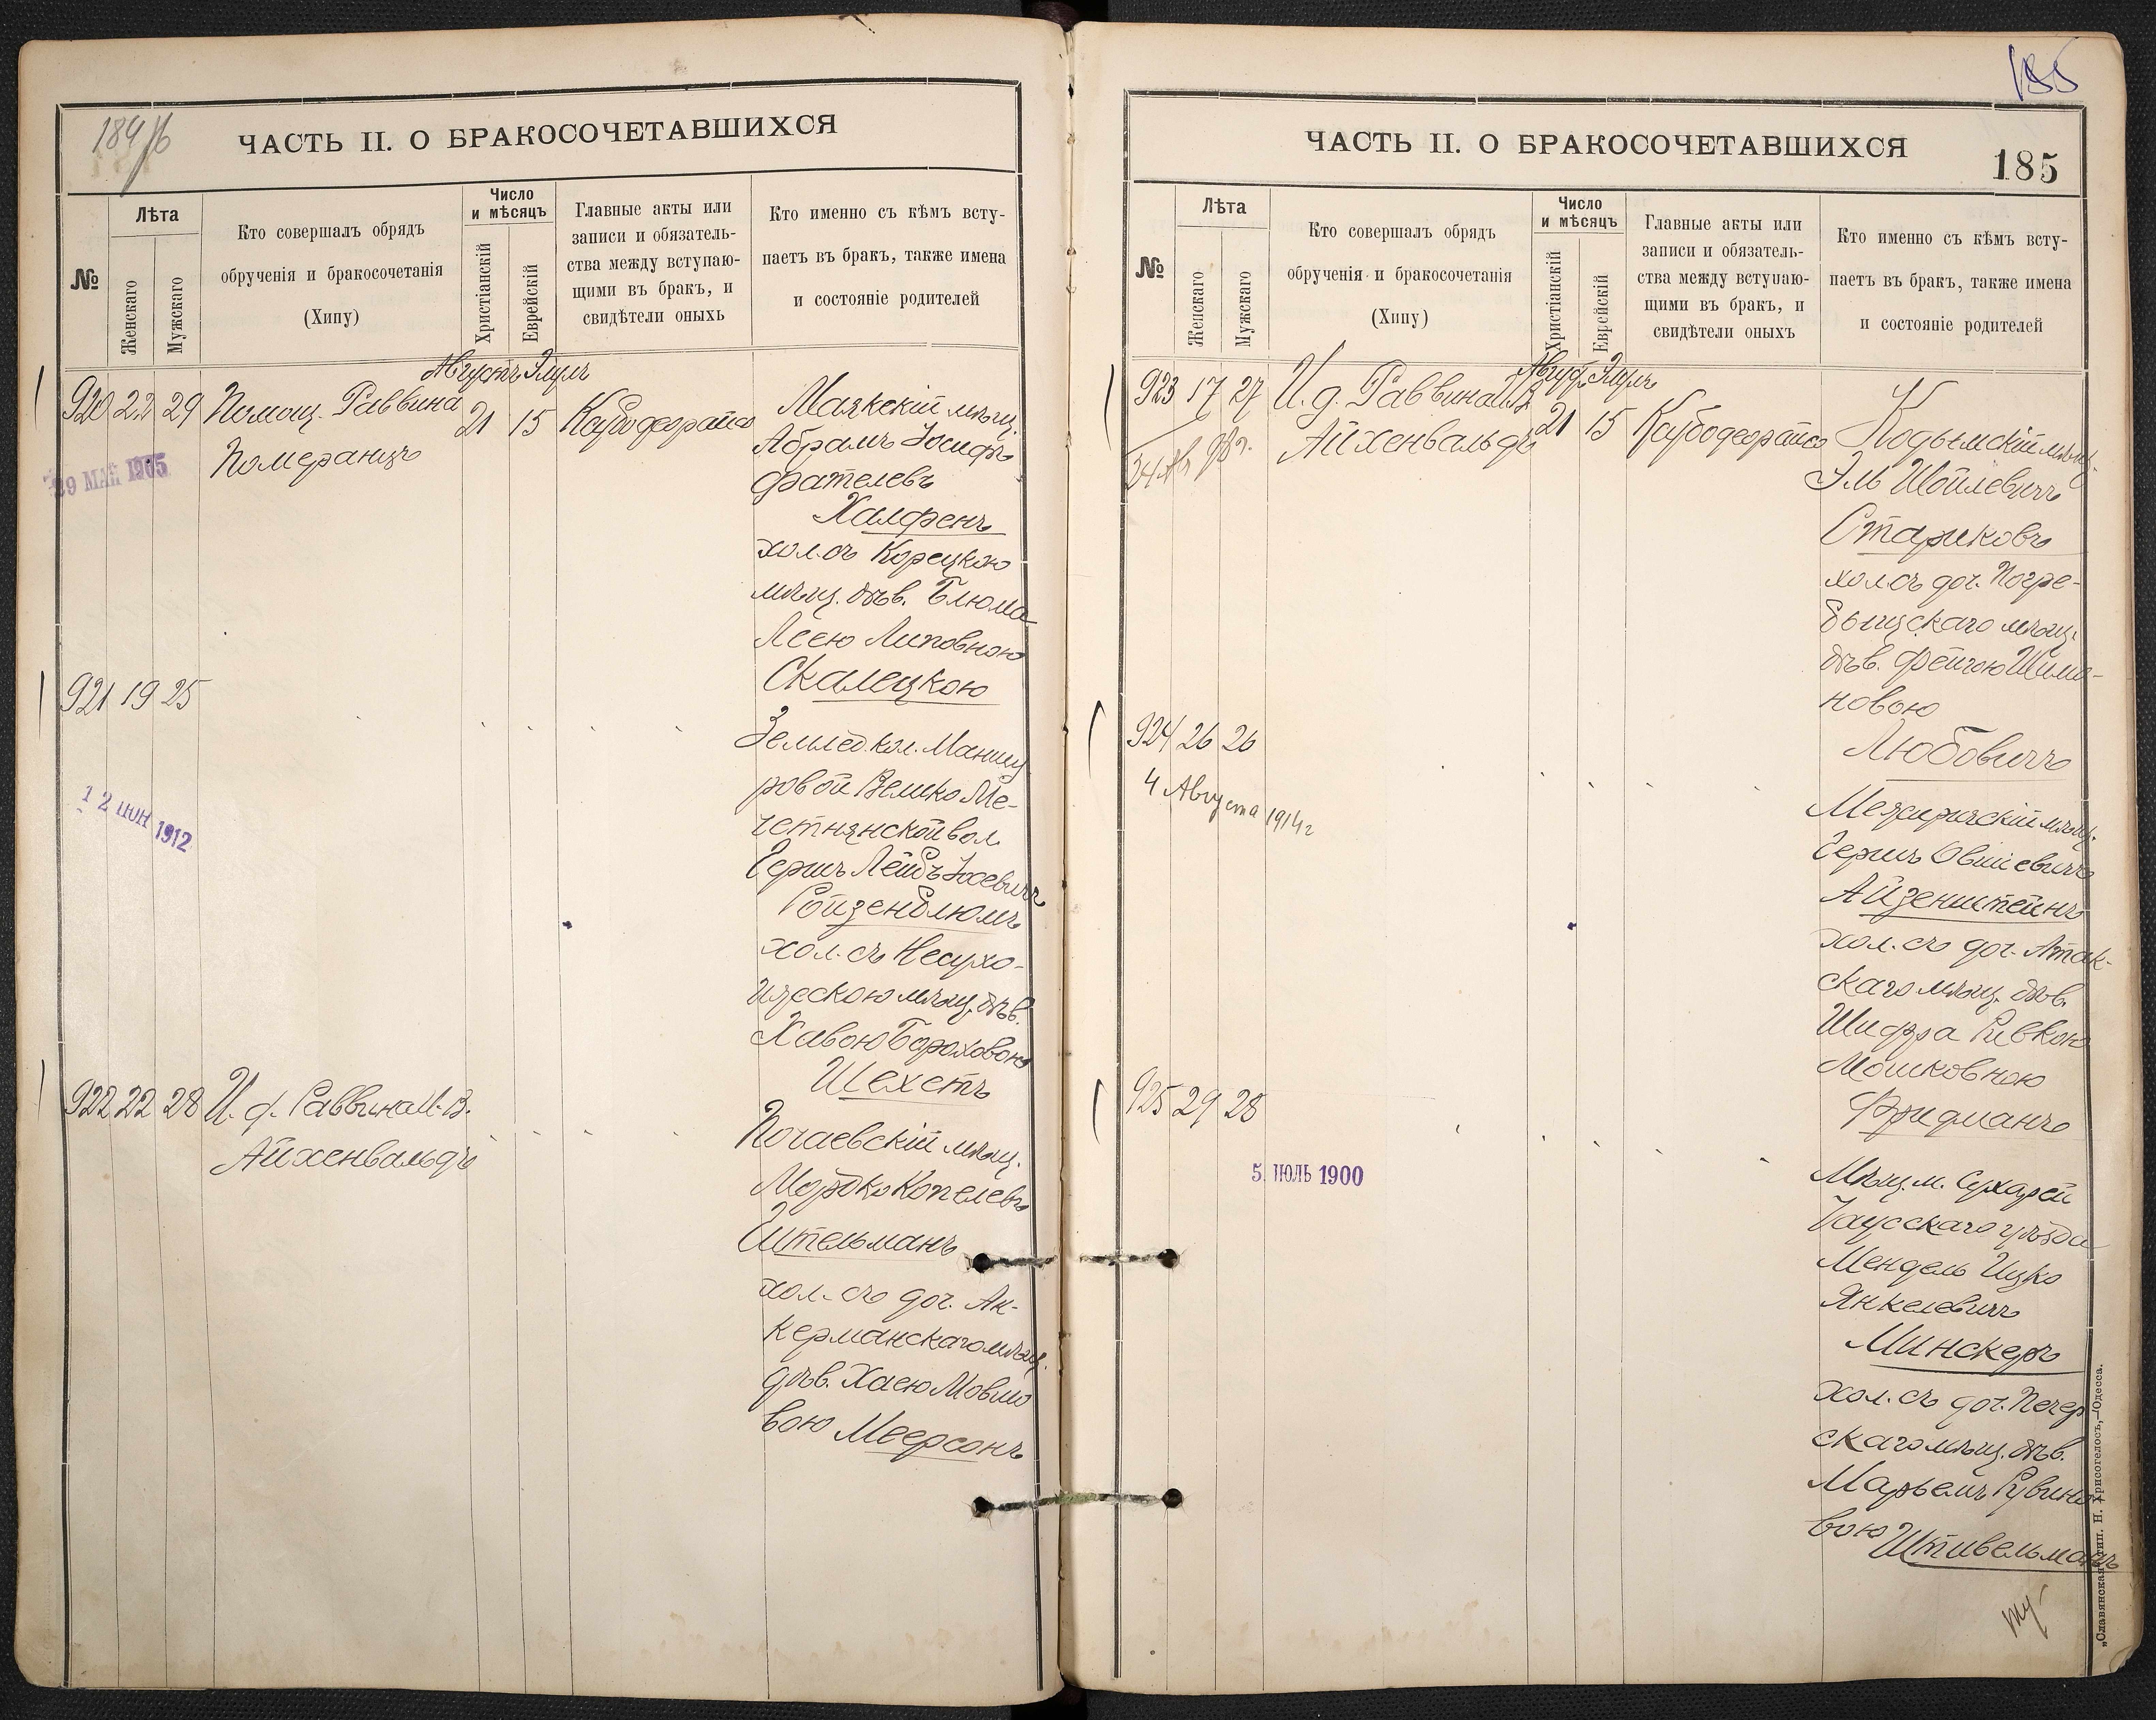 184/б
ЧАСТЬ II. О БРАКОСОЧЕТАВШИХСЯ
№
Лѣта
Женскаго
Мужскаго
Кто совершалъ обрядъ
обрученія и бракосочетанія
(Хипу)
Число
и мѣсяцъ
Христіанскій
Еврейскій
Главные акты или
записи и обязатель-
ства между вступаю-
щими въ бракъ, и
свидѣтели оныхъ
Кто именно съ кѣмъ всту-
паетъ въ бракъ, также имена
и состояніе родителей
Августъ Элулъ
920 22 29 Помощ. Раввина 21 15
Померанцъ
29 МАЙ 1905
Маякскій мѣщ.
Абрамъ Іосифъ
Фателевъ
Халфенъ
хол. съ Корецкою
мѣщ. дѣв. Блюма
Леею Липовною
Скалецкою
921 19 25
12 ІЮН 1912
Землед. кол. Маншу
ровой Велико Ме-
четнянской вол.
Гершъ Лейбъ Іосевичъ
Ройзенблюмъ
хол. съ Несухо-
ижескою мѣщ. дѣв.
Хавою Бороховою
Шехетъ
922 22 28 И. д. Раввина И. В.
Айхенвальдъ
Почаевскій мѣщ.
Мордко Копелевъ
Штельманъ
хол. съ доч. Ак-
керманскаго мѣщ.
дѣв. Хаею Мовшо
вою Меерсонъ
185
ЧАСТЬ II. О БРАКОСОЧЕТАВШИХСЯ
185
№
Лѣта
Женскаго
Мужскаго
Кто совершалъ обрядъ
обрученія и бракосочетанія
(Хипу)
Число
и мѣсяцъ
Христіанскій
Еврейскій
Главные акты или
записи и обязатель-
ства между вступаю-
щими въ бракъ, и
свидѣтели оныхъ
Кто именно съ кѣмъ всту-
паетъ въ бракъ, также имена
и состояніе родителей
Август. Элулъ
923 17 27 И. д. Раввина И. В. 21 15
Айхенвальдъ
Кодымскій мѣщ.
Эль Шойлевичъ
Стариковъ
хол. съ доч. Погре-
быщскаго мѣщ.
дѣв. Фейгою Шима-
новою
Любовичъ
924 26 26
4 Августа 1914 г
Межиричскій мѣщ.
Гершъ Овшіевичъ
Айзенштейнъ
хол. съ доч. Атак-
скаго мѣщ. дѣв.
Шифра Ривкою
Мошковною
Фридманъ
925 29 28
5 ІЮЛЬ 1900
Мѣщ. м. Сухарей
Чаусскаго уѣзда
Мендель Ицко
Янкелевичъ
Минскеръ
хол. съ доч. Печер
скаго мѣщ. дѣв.
Марьемъ Рувино
вою Штивельманъ
„Славянская“ тип. Н. Хрисогелосъ,—Одесса.